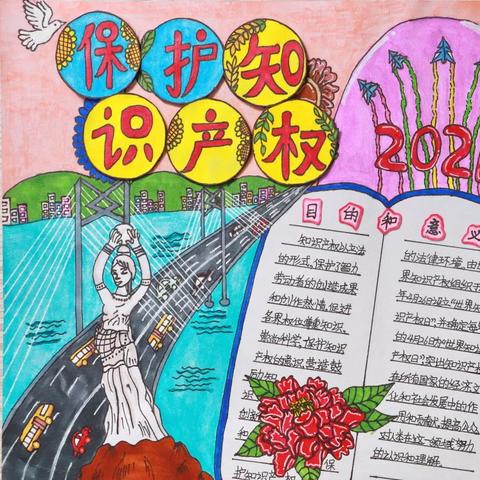 保护知
识产权
202
目的和意义
知识产权以立法
的形式,保护了智力
劳动者的创造成果
和创作热情,促进
各界权位懂知识、
崇尚科学,保护知识
产权的意识,营造鼓
励知
识
创
和
护知识产权
保
的法律环境,由
界知识产权组织于
年4月26日设立"世界知
识产权日",并确定每
的4月26日为"世界知识
产权日",突出知识产权
在所有国家的经济文
化和社会发展中的作
用和贡献,提高公众
对人类在这一领域努力
的认识和理解。